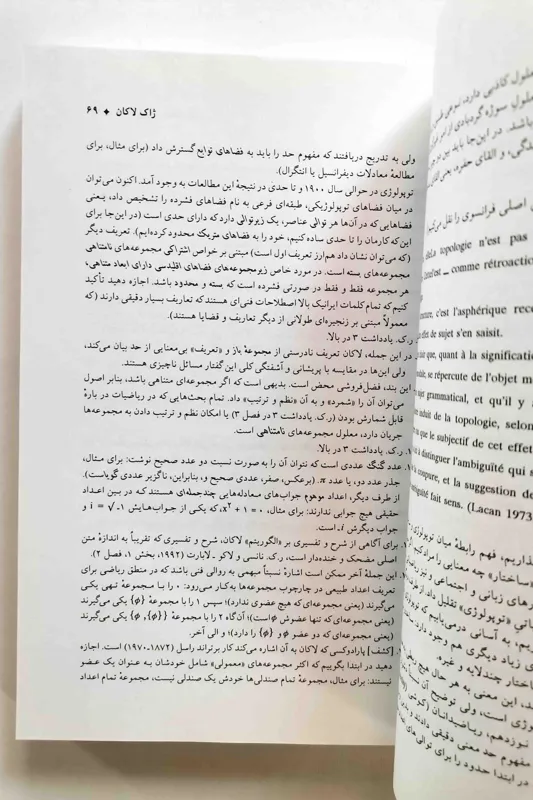 ژاک لاکان ✦ ۶۹
ولی به تدریج دریافتند که مفهوم حد را باید به فضاهای توابع گسترش داد (برای مثال، برای
مطالعهٔ معادلات دیفرانسیل یا انتگرال).
توپولوژی در حوالی سال ۱۹۰۰ و تا حدی در نتیجهٔ این مطالعات به وجود آمد. اکنون می‌توان
در میان فضاهای توپولوژیکی، طبقه‌ای فرعی به نام فضاهای فشرده را تشخیص داد، یعنی
فضاهایی که در آن‌ها هر توالی عناصر، یک زیرتوالی دارد که دارای حدی است (در این‌جا برای
این‌که کارمان را تا حدی ساده کنیم، خود را به فضاهای متریک محدود کرده‌ایم). تعریف دیگر
(که می‌توان نشان داد هم‌ارز تعریف اول است) مبتنی بر خواص اشتراکی مجموعه‌های نامتناهی
مجموعه‌های بسته است. در مورد خاص زیرمجموعه‌های فضاهای اقلیدسی دارای ابعاد متناهی،
هر مجموعه فقط و فقط در صورتی فشرده است که بسته و محدود باشد. اجازه دهید تأکید
کنیم که تمام کلمات ایرانیک بالا اصطلاحات فنی‌ای هستند که تعاریف بسیار دقیقی دارند (که
معمولاً مبتنی بر زنجیره‌ای طولانی از دیگر تعاریف و قضایا هستند).
ر.ک. یادداشت ۳ در بالا.
در این جمله، لاکان تعریف نادرستی از مجموعهٔ باز و «تعریف» بی‌معنایی از حد بیان می‌کند،
ولی این‌ها در مقایسه با پریشانی و آشفتگی کلی این گفتار مسائل ناچیزی هستند.
این بند، فضل‌فروشی محض است. بدیهی است که اگر مجموعه‌ای متناهی باشد، بنابر اصول
می‌توان آن را «شمرد» و به آن «نظم و ترتیب» داد. تمام بحث‌هایی که در ریاضیات در بارهٔ
قابل شمارش بودن (ر.ک. یادداشت ۳ در فصل ۳) یا امکان نظم و ترتیب دادن به مجموعه‌ها
جریان دارد، معلول مجموعه‌های نامتناهی است.
ر.ک. یادداشت ۳ در بالا.
عدد گنگ عددی است که نتوان آن را به‌صورت نسبت دو عدد صحیح نوشت: برای مثال،
جذر عدد دو، یا عدد π. (برعکس، صفر، عددی صحیح و، بنابراین، ناگزیر عددی گویاست).
از طرف دیگر، اعداد موهوم جواب‌های معادله‌هایی چندجمله‌ای هستند که در بین اعداد
حقیقی هیچ جوابی ندارند: برای مثال، x² + 1 = 0، که یکی از جواب‌هایش i = √-1 و
جواب دیگرش i- است.
برای آگاهی از شرح و تفسیری بر «الگوریتم» لاکان، شرح و تفسیری که تقریباً به اندازهٔ متن
اصلی مضحک و خنده‌دار است، ر.ک. نانسی و لاکو ـ لابارت (۱۹۹۲، بخش ۱، فصل ۲).
این جملهٔ آخر ممکن است اشارهٔ نسبتاً مبهمی به روالی فنی باشد که در منطق ریاضی برای
تعریف اعداد طبیعی در چارچوب مجموعه‌ها به‌کار می‌رود: ۰ را با مجموعهٔ تهی یکی
می‌گیرند (یعنی مجموعه‌ای که هیچ عضوی ندارد)؛ سپس ۱ را با مجموعهٔ {ϕ} یکی می‌گیرند
(یعنی مجموعه‌ای که تنها عضوش ϕ است)؛ آن‌گاه ۲ را با مجموعهٔ {ϕ, {ϕ}} یکی می‌گیرند
(یعنی مجموعه‌ای که دو عضو ϕ و {ϕ} را دارد)؛ و الی آخر.
[کشف] پارادوکسی که لاکان به آن اشاره می‌کند برتراند راسل (۱۸۷۲-۱۹۷۰) است. اجازه
دهید در ابتدا بگوییم که اکثر مجموعه‌های «معمولی» شامل خودشان به عنوان یک عضو
نیستند: برای مثال، مجموعهٔ تمام صندلی‌ها خودش یک صندلی نیست، مجموعهٔ تمام اعداد
اصلی فرانسوی را نقل می‌کنیم
topologie n'est pas
comme rétroaction
c'est l'asphérique
effet de sujet s'en saisit.
que, quant à la signification
se répercute de l'objet
grammatical, et qu'il y
induit de la topologie, selon
que le subjectif de cet effet
distinguer l'ambiguïté qui
coupure, et la suggestion de
fait sens. (Lacan 1973
فهم رابطهٔ میان توپولوژی
«ساختار» چه معنایی را مراد
به آسانی درمی‌یابیم که
زیاد دیگری هم وجود دارد
ساختار چندلایه و غیره.
این معنی به هر حال هیچ
نوزدهم، ریاضیدانان (کوشی
مفهوم حد معنی دقیقی دادند
در ابتدا حدود را برای توالی‌های